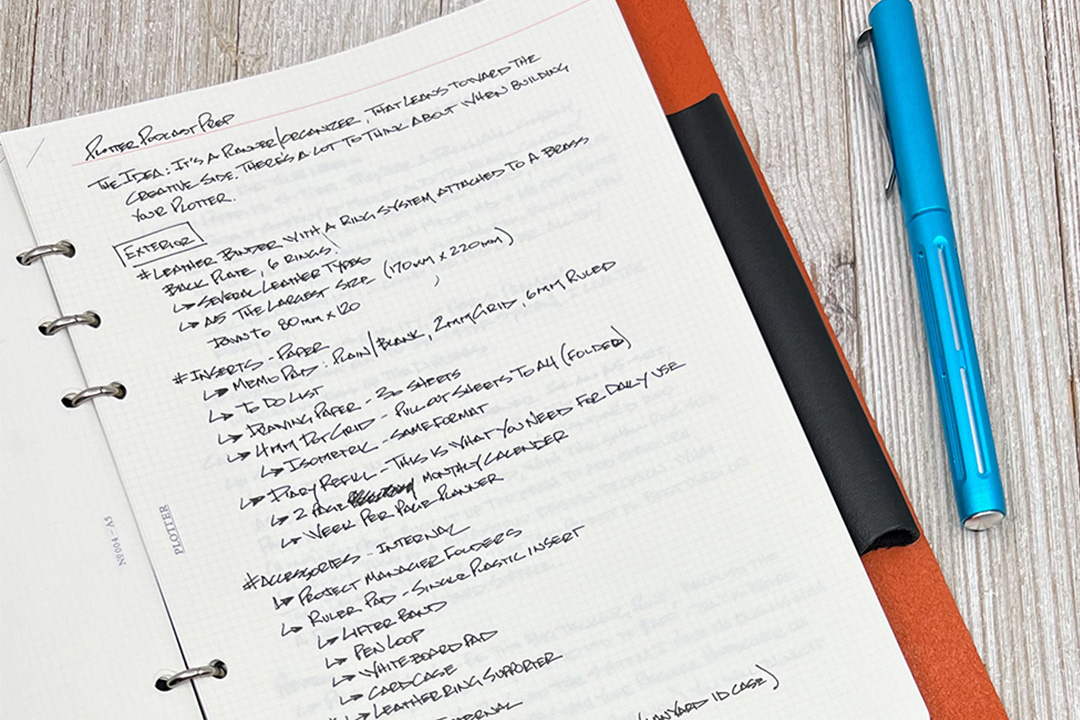 PLOTTER PODCAST PREP
THE IDEA: IT'S A PLANNER/ORGANIZER, THAT LEANS TOWARD THE
CREATIVE SIDE. THERE'S A LOT TO THINK ABOUT WHEN BUILDING
YOUR PLOTTER.
EXTERIOR
# LEATHER BINDER WITH A RING SYSTEM ATTACHED TO A BRASS
BACK PLATE, 6 RINGS.
↳ SEVERAL LEATHER TYPES
↳ A5 THE LARGEST SIZE (170mm x 220mm)
DOWN TO 80mm x 120
# INSERTS - PAPER
↳ MEMO PAD: PLAIN/BLANK, 2mm GRID, 6mm RULED
↳ TO DO LIST
↳ DRAWING PAPER - 30 SHEETS
↳ 4mm DOT GRID - PULL OUT SHEETS TO A4 (FOLDED)
↳ ISOMETRIC - SAME FORMAT
↳ DIARY REFILL - THIS IS WHAT YOU NEED FOR DAILY USE
↳ 2 PAGE MONTHLY CALENDER
↳ WEEK PER PAGE PLANNER
# ACCESSORIES - INTERNAL
↳ PROJECT MANAGER FOLDERS
↳ RULER PAD - SINGLE PLASTIC INSERT
↳ LIFTER BAND
↳ PEN LOOP
↳ WHITEBOARD PAD
↳ CARD CASE
↳ LEATHER RING SUPPORTER
LANYARD ID CASE)
PLOTTER
Nº004-A5